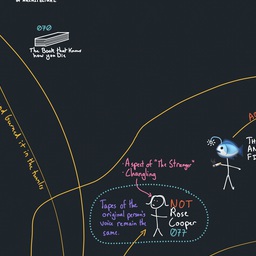 070
The Book that Knew
how you Die
d burned it in the tunnels
- Aspect of "The Stranger"
- Changling
Tapes of the
original person's
voice remain the
same.
NOT
Rose
Cooper
077